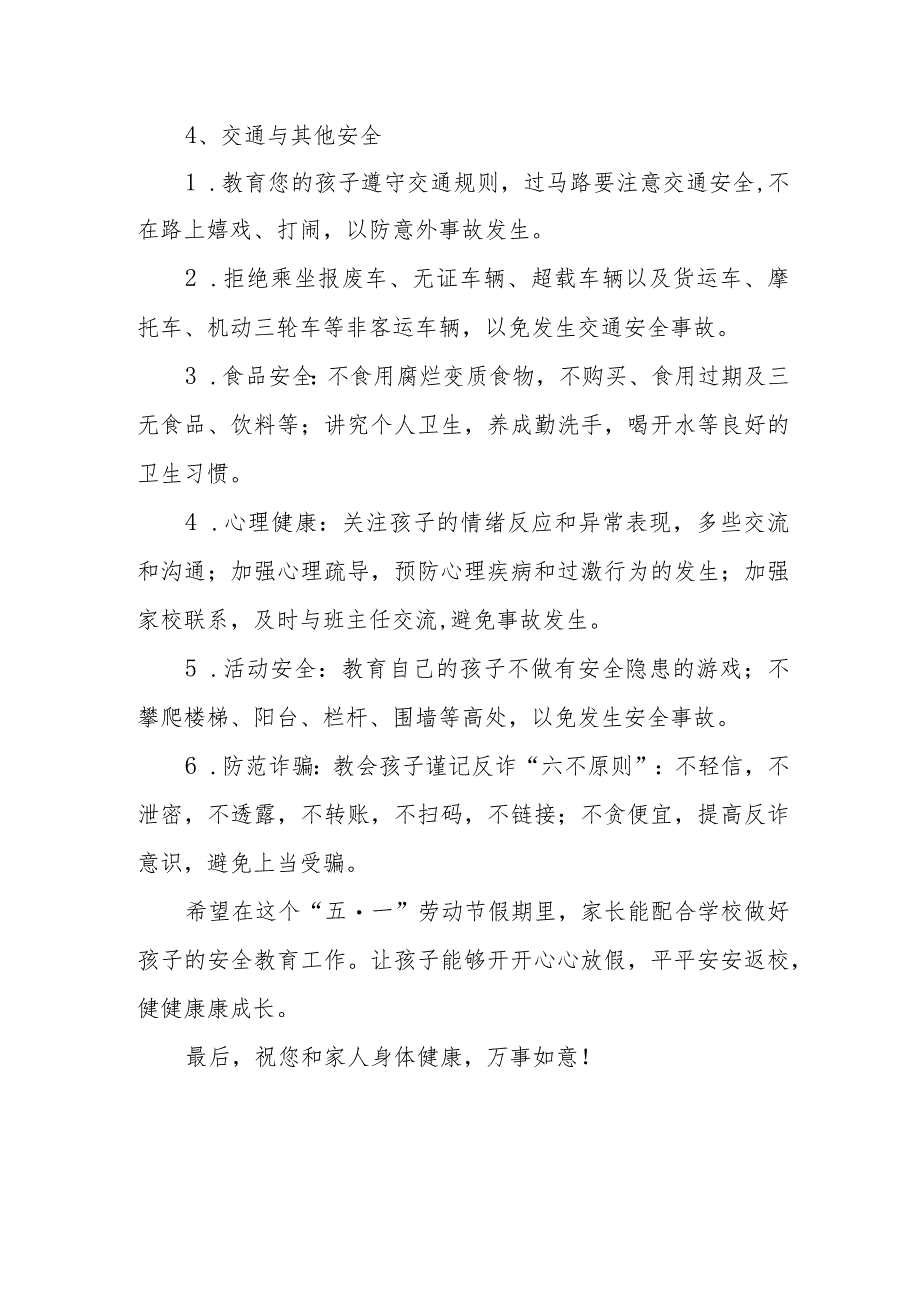 4、交通与其他安全
1.教育您的孩子遵守交通规则，过马路要注意交通安全,不
在路上嬉戏、打闹，以防意外事故发生。
2.拒绝乘坐报废车、无证车辆、超载车辆以及货运车、摩
托车、机动三轮车等非客运车辆，以免发生交通安全事故。
3.食品安全：不食用腐烂变质食物，不购买、食用过期及三
无食品、饮料等；讲究个人卫生，养成勤洗手，喝开水等良好的
卫生习惯。
4.心理健康：关注孩子的情绪反应和异常表现，多些交流
和沟通；加强心理疏导，预防心理疾病和过激行为的发生；加强
家校联系，及时与班主任交流,避免事故发生。
5.活动安全：教育自己的孩子不做有安全隐患的游戏；不
攀爬楼梯、阳台、栏杆、围墙等高处，以免发生安全事故。
6.防范诈骗：教会孩子谨记反诈“六不原则”：不轻信，不
泄密，不透露，不转账，不扫码，不链接；不贪便宜，提高反诈
意识，避免上当受骗。
希望在这个“五·一”劳动节假期里，家长能配合学校做好
孩子的安全教育工作。让孩子能够开开心心放假，平平安安返校，
健健康康成长。
最后，祝您和家人身体健康，万事如意！